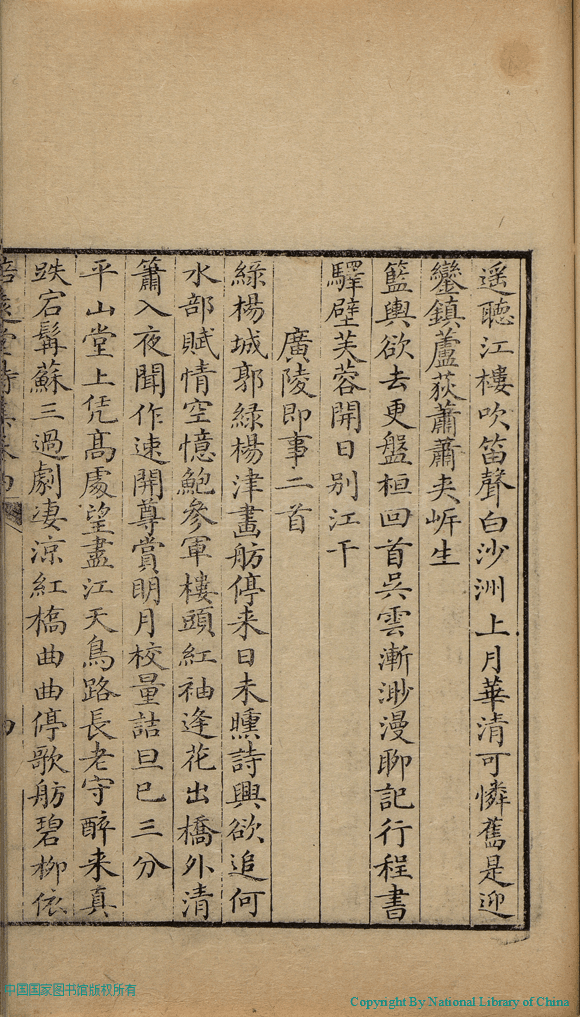 遥聽江樓吹笛聲白沙洲上月華清可憐舊是迎
鑾鎮蘆荻蕭蕭夾岸生
籃輿欲去更盤桓回首吳雲漸渺漫聊記行程書
驛壁芙蓉開日別江干
廣陵即事二首
綠楊城郭綠楊津畫舫停来日未曛詩興欲追何
水部賦情空憶鮑參軍樓頭紅袖逢花出橋外清
簫入夜聞作速開尊賞明月校量詰旦已三分
平山堂上凭高處望盡江天鳥路長老守醉来真
跌宕髯蘇三過劇凄涼紅橋曲曲停歌舫碧柳依
堂詩集卷四
四
中国国家图书馆版权所有
Copyright By National Library of China